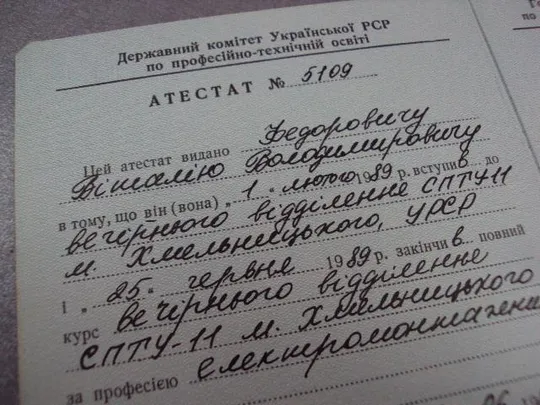 Державний комітет Української РСР
по професійно-технічній освіті
АТЕСТАТ № 5109
Цей атестат видано Федоровичу
Віталію Володимировичу
в тому, що він (вона) „1" лютого 1989 р. вступив до
вечірнього відділенне СПТУ-11
м. Хмельницького, УРСР
і „25" червня 1989 р. закінчив повний
курс вечірнього відділенне
СПТУ-11 м. Хмельницького
за професією електромонтажник